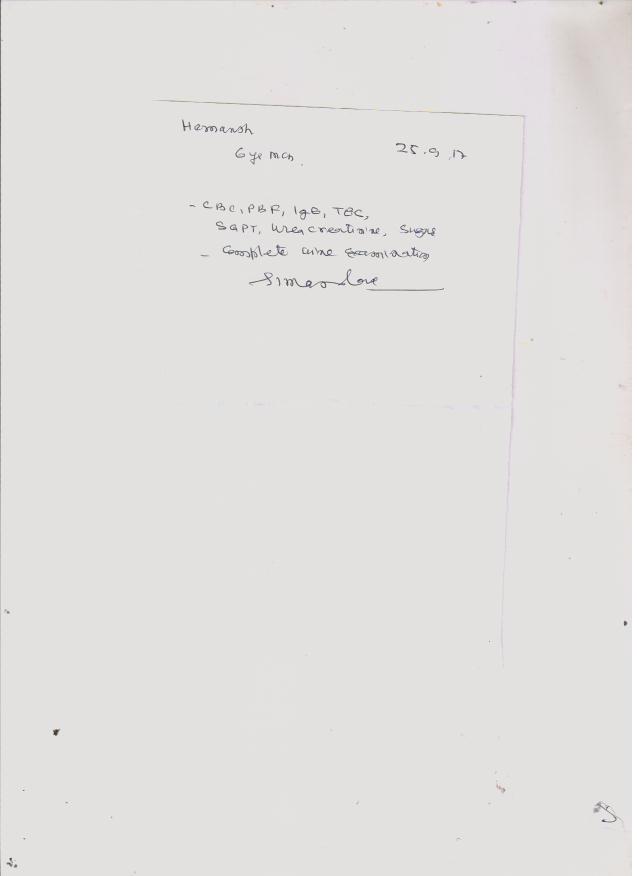 Hemansh
6 ye mch.
25.9.17
- CBC, PBF, IgE, TEC,
SGPT, Urea, creatinine, Sugar
- Complete urine examination